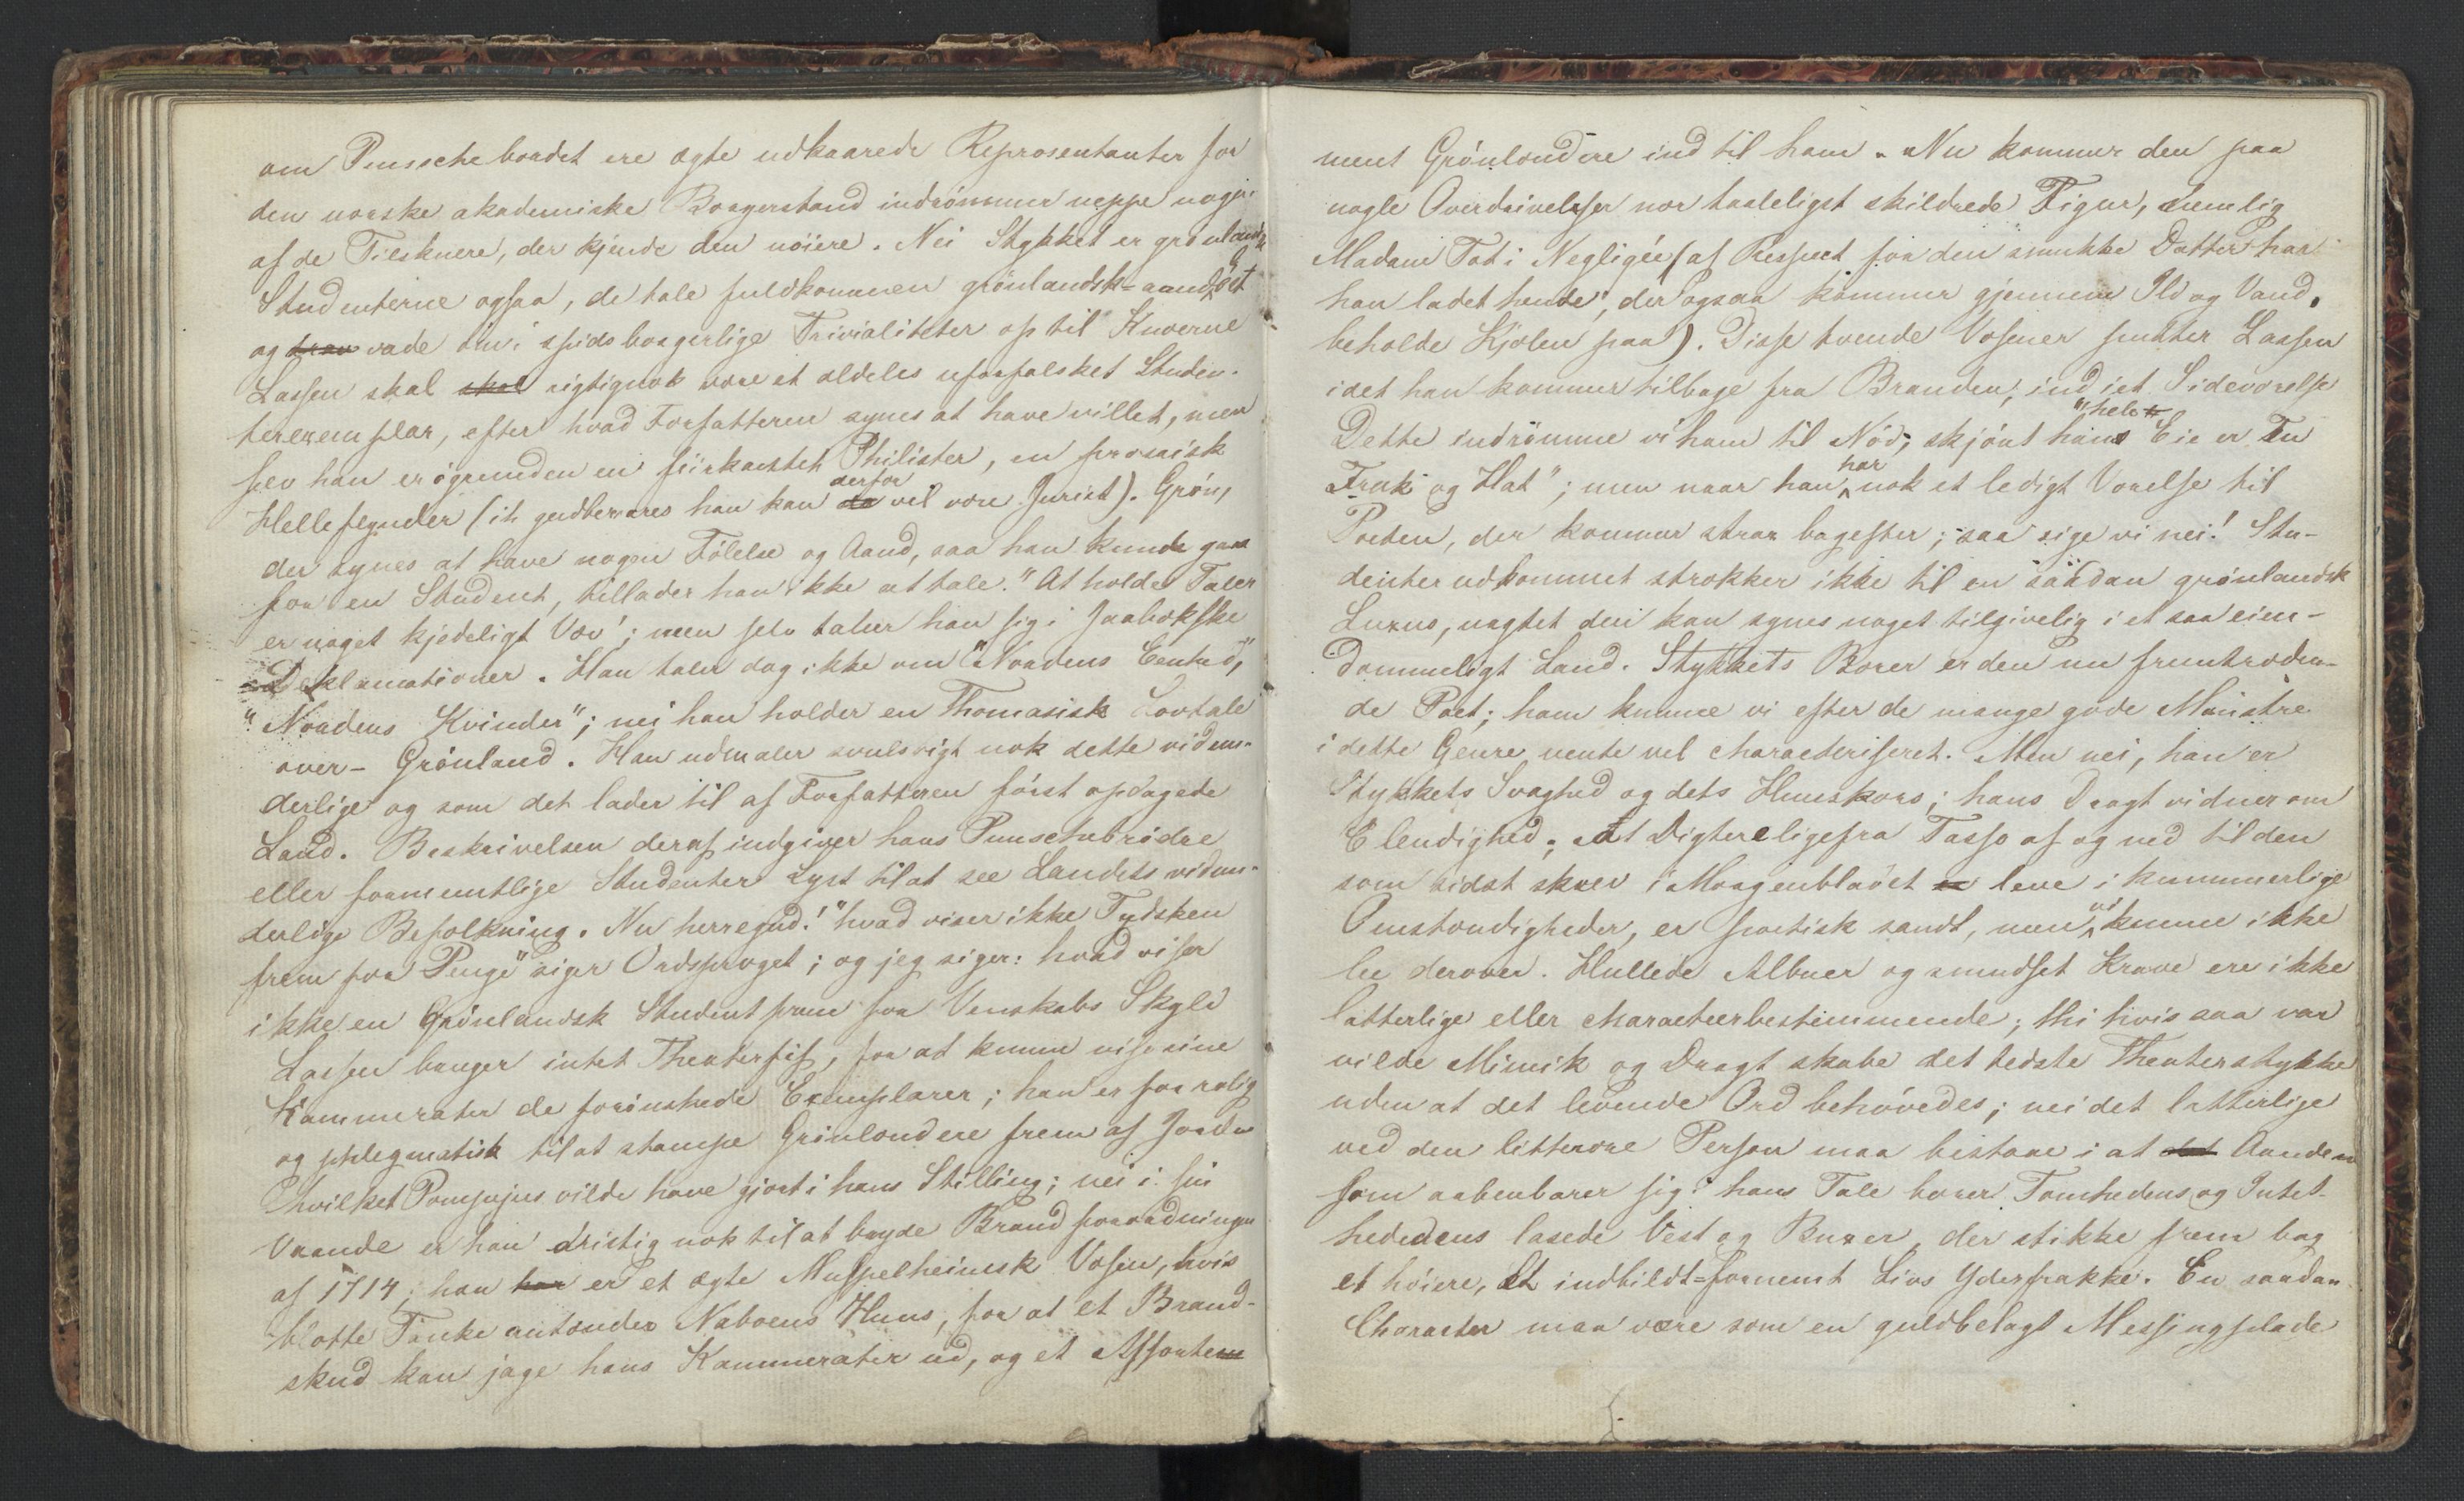 om Punschebordet ere ægte udkaarede Repræsentanter for
den norske akademiske Borgerstand indrömmer neppe nogen
af de Tilskuere, der kjende den nöiere. Nei Stykket er grönlandsk
Studenterne ogsaa, de tale fuldkommen grönlandsk-aandlöst
og vade om i spidsborgerlige Trivialiteter op til Knæerne
Lassen skal skal rigtignok være et aldeles uforfalsket Studen-
terexemplar, efter hvad Forfatteren synes at have villet, men
selv han er igrunden en Philister, en prosaisk
Helleflynder (ih gudbevares han kan da derfor vel være Jurist). Grön,
der synes at have nogen Fölelse og Aand, saa han kunde gaae
for en Student, tillader han ikke at tale. "At holde Taler
er noget kjedeligt Væv"; men selv taler han sig i
Deklamationer. Han taler dog ikke om "Nordens Eenhed,"
"Nordens Kvinder"; nei han holder en Thomasisk Lovtale
over - Grönland. Han udmaler svulstigt nok dette vidun-
derlige og som det lader til af Forfatteren först opdagede
Land. Beskrivelsen deraf indgiver hans Punschebrödre
eller formentlige Studenter Lyst til at see Landets vidun-
derlige Befolkning. Nu herregud! "hvad viser ikke Tydsken
frem for Penge" siger Ordsproget; og jeg siger: hvad viser
ikke en Grönlandsk Student frem for Venskabs Skyld
Lassen bruger intet Theaterfif, for at kunne vise sine
Kammerater de forönskede Exemplarer; han er for rolig
og phlegmatisk til at stampe Grönlændere frem af Jorden
hvilket Pompejus vilde have gjort i hans Stilling; nei i sin
Vaande er han dristig nok til at bryde Brandforordningen
af 1714; han har er et ægte Muspelheimsk Væsen, hvis
blotte Tanke antænder Naboens Huus, for at et Brand-
skud kan jage hans Kammerater ud, og et Assortem
ment Grönlændere ind til ham. Nu kommer den paa
nogle Overdrivelser nær taaleligst skildrede Figur, nemlig
Madam Tot i Negligée (af Respect for den smukke Datter har
han ladet hende, der ogsaa kommer gjennem Ild og Vand,
beholde Kjolen paa). Disse tvende Væsener putter Lassen
idet han kommer tilbage fra Branden, ind i et Sideværelse
Dette indrömme vi ham til Nöd, skjönt hans "hele Eie er En
Frak og Hat"; men naar han har nok et ledigt Værelse til
Poeten, der kommer strax bagefter; saa sige vi nei! Stu-
denterudkommet strækker ikke til en saadan grönlandsk
Luxus, uagtet den kan synes noget tilgivelig i et saa eien-
dommeligt Land. Stykkets Bærer er den nu fremtræden-
de Poet; ham kunne vi efter de mange gode Mönstre
i dette Genre vente vel characteriseret. Men nei, han er
Stykkets Svaghed og dets Huuskors; hans Dragt vidner om
Elendighed; At Digtere ligefra Tasso af og ned til den
som sidst skrev i Morgenbladet leve i kummerlige
Omstændigheder, er poetisk sandt, men vi kunne ikke
lee derover. Hullede Albuer og smudset Krave ere ikke
latterlige eller characteerbestemmende; thi hvis saa var
vilde Mimik og Dragt skabe det bedste Theaterstykke
uden at det levende Ord behövedes; nei det latterlige
ved den litterære Person maa bestaae i at det Aanden
som aabenbarer sig i hans Tale bærer Tomhedens og Intet-
hededens lasede Vest og Buxer, der stikke frem bag
et höiere, et indbildt-fornemt Livs Yderfrakke. En saadan
Character maa være som en guldbelagt Messingplade